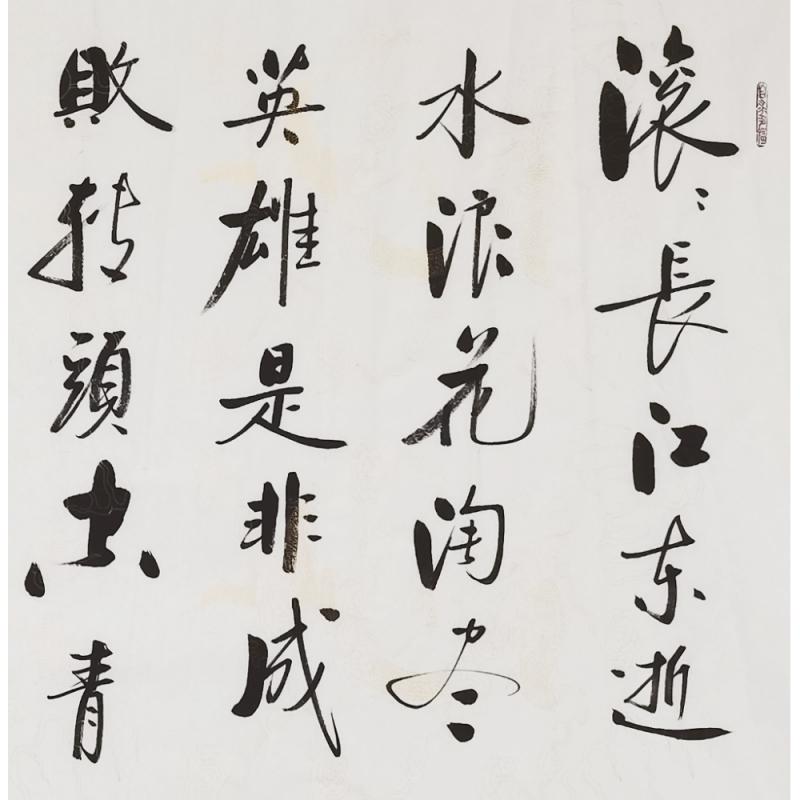 滚〻長江东逝
水浪花淘尽
英雄是非成
敗转頭空青